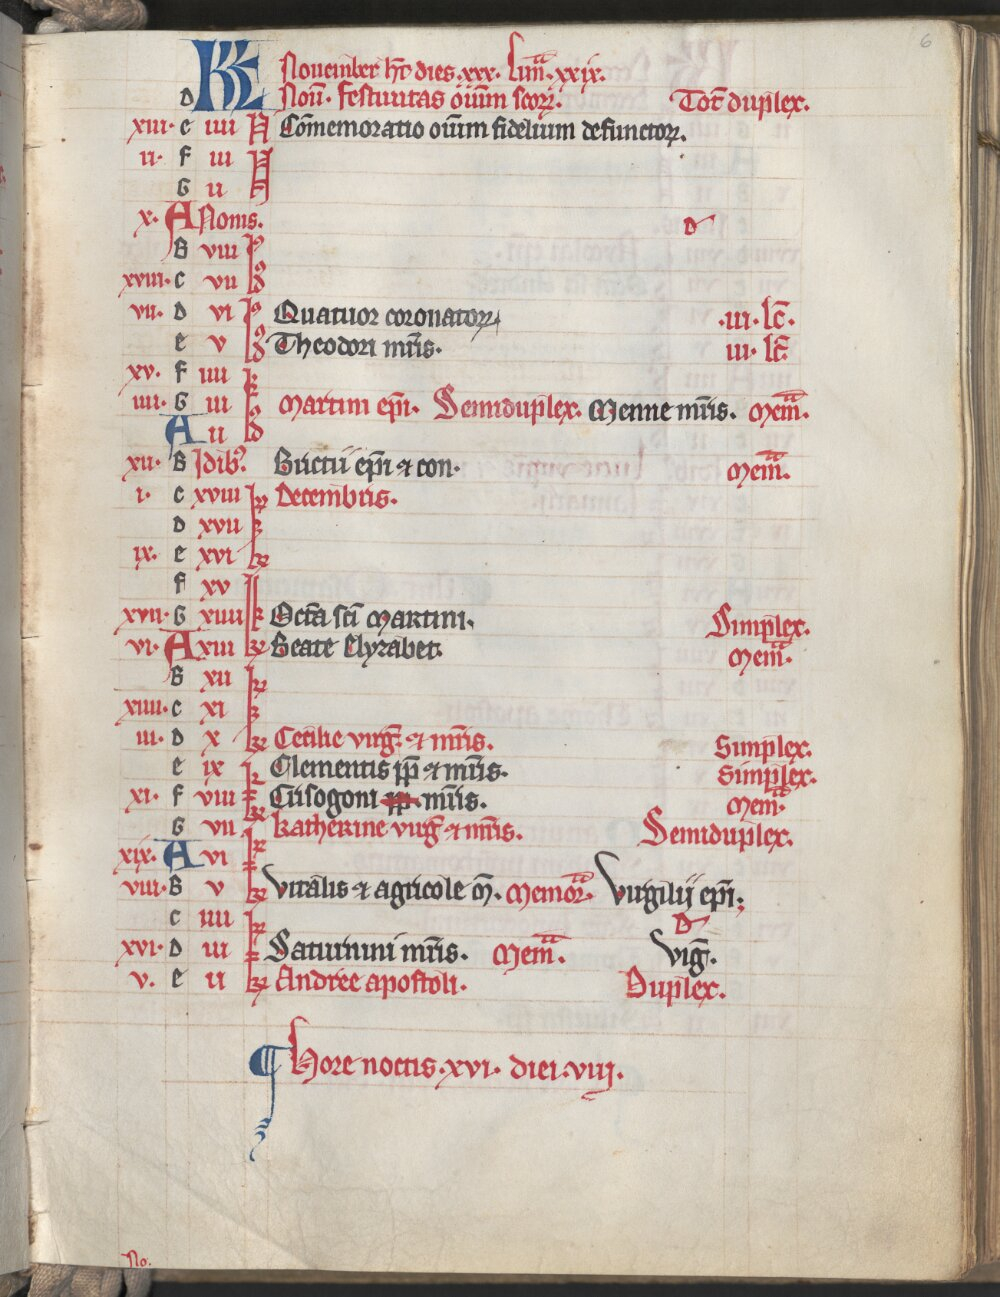 6
KL Nouember hr̄ dies .xxx. Lun̄a .xxix.
D Nou̅. Festiuitas o̅i̅um sc̅o̅rꝝ. Tot̅ duplex.
xiii. E iiii N Co̅me̅moratio oi̅um fidelium defunctoꝝ.
ii. F iii N
G ii N
x. A Nonis. D
B viii Id
xviii. C vii Id
vii. D vi Id Quatuor coronatoꝝ .iii. lc̅.
e v Id Theodori mr̅is. iii. lc̅.
xv. F iiii Id
iiii. G iii Id Martini epi̅. Semiduplex. Menne mr̅is. Mem̅.
A ii Id
xii. B Idib9. Brictii epi̅ ⁊ con. Mem̅.
i. C xviii kl Decembris.
D xvii kl
ix. e xvi kl
F xv kl
xvii. G xiiii kl Octa̅ sc̅i Martini. Simplex.
vi. A xiii kl Beate Elyzabet. Mem̅.
B xii kl
xiiii. C xi kl
iii. D x kl Cecilie uirg̅. ⁊ mr̅is. Simplex.
e ix kl Clementis pp̅ ⁊ mr̅is. Simplex.
xi. F viii kl Crisogoni pp̅ mr̅is. Mem̅.
G vii kl Katherine uirg̅ ⁊ mr̅is. Semiduplex.
xix. A vi kl
viii. B v kl Vitalis ⁊ agricole m̅. Memor̅. Virgilij epi̅.
C iiii kl D
xvi. D iii kl Saturnini mr̅is. Mem̅. Vig̅.
v. e ii kl Andree apostoli. Duplex.
¶ Hore noctis .xvi. diei .viij.
No.